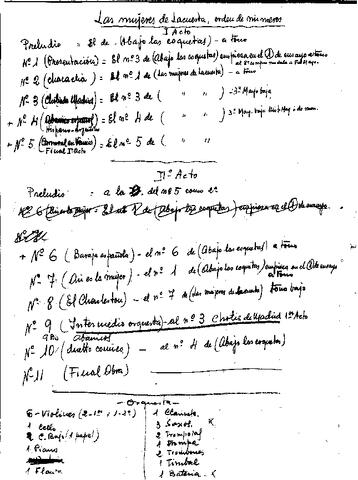 Las mujeres de Lacuesta, orden de numeros
I Acto
Preludio = El de (Abajo las coquetas) - a tono
Nº 1 (Presentación) = El nº 3 de (Abajo las coquetas) empieza en el ① de ensayo a tono
Nº 2 (Chacachá) = El nº 1 de (Las mujeres de Lacuesta) - a tono
Nº 3 (Chotis de Madrid) = El nº 3 de ( " " ) - 3ª Mayor baja
+ Nº 4 = El nº 4 de ( " " ) 3ª May. baja
Hispano-
+ Nº 5 (Carnaval en Venecia) = El nº 5 de ( " " )
Final Iº Acto
IIº Acto
Preludio = a la del nº 5 como 1º
+ Nº 6 (Baraja española) - el nº 6 de (Abajo las coquetas) a tono
Nº 7 (Asi es la mujer) - el nº 1 de (Abajo las coquetas) empieza en el ① de ensayo
a tono
Nº 8 (El Charleston) - el nº 7 de (las mujeres de Lacuesta) tono bajo
Nº 9 (Intermedio orquesta) - al nº 3 Chotis de Madrid 1º Acto
Nº 10 (duetto comico) - al nº 4 de (Abajo las coquetas)
Nº 11 (Final Obra)
- Orquesta -
6 - Violines (2-1º y 1-2º)
1 Cello
2 C. Bajo (1 papel)
1 Piano
1 Flauta
1 Clarinete
3 Saxos. K
2 Trompetas
1 Trompa
2 Trombones
1 Timbal
1 Bateria